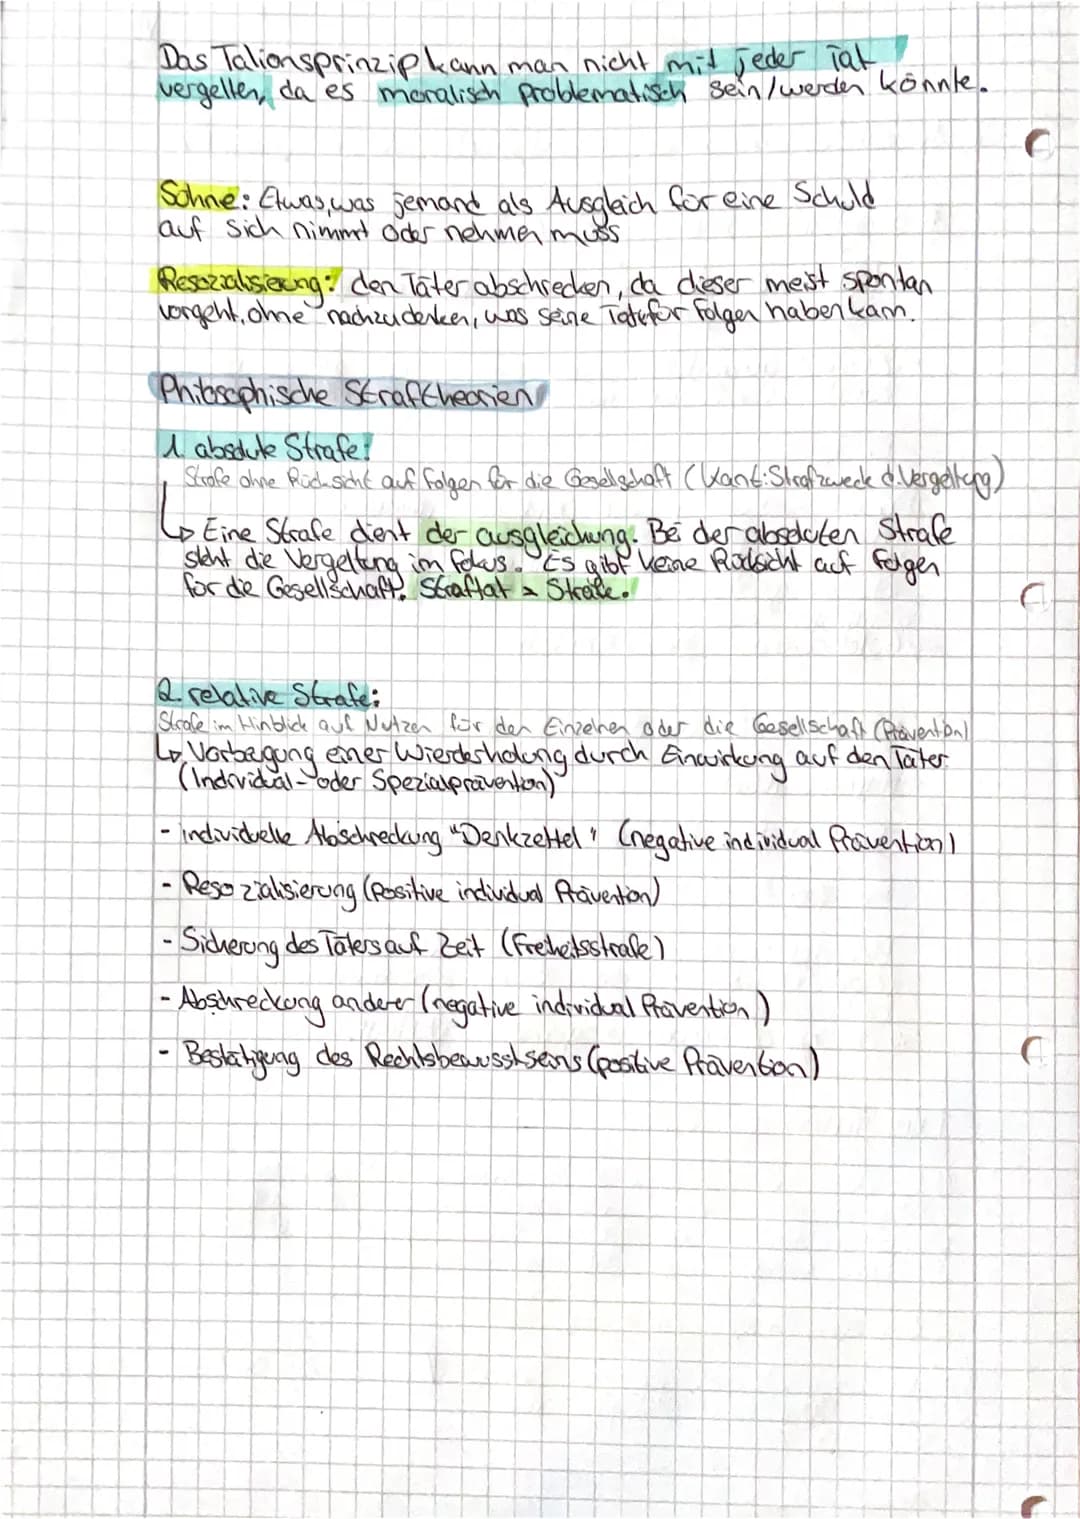 Das Talionsprinzip kann man nicht mit jeder Tat
vergelten, da es moralisch problematisch sein/werden könnte.
Sühne: Etwas, was jemand als Ausgleich für eine Schuld
auf sich nimmt oder nehmen muss
Resozialisierung: den Täter abschrecken, da dieser meist spontan
vorgeht, ohne nachzudenken, was seine Tat für Folgen haben kann.
Philosophische Straftheorien
1. absolute Strafe:
Strafe ohne Rücksicht auf Folgen für die Gesellschaft (Kant: Strafzweck d. Vergeltung)
↳ Eine Strafe dient der ausgleichung. Bei der absoluten Strafe
steht die Vergeltung im Fokus. Es gibt keine Rücksicht auf Folgen
für die Gesellschaft. Straftat = Strafe.
2. relative Strafe:
Strafe im Hinblick auf Nutzen für den Einzelnen oder die Gesellschaft (Prävention)
↳ Vorbeugung einer Wiederholung durch Einwirkung auf den Täter
(Individual- oder Spezialprävention)
- individuelle Abschreckung "Denkzettel" (negative individual Prävention)
- Resozialisierung (Positive individual Prävention)
- Sicherung des Täters auf Zeit (Freiheitsstrafe)
- Abschreckung anderer (negative individual Prävention)
- Bestätigung des Rechtsbewusstseins (positive Prävention)